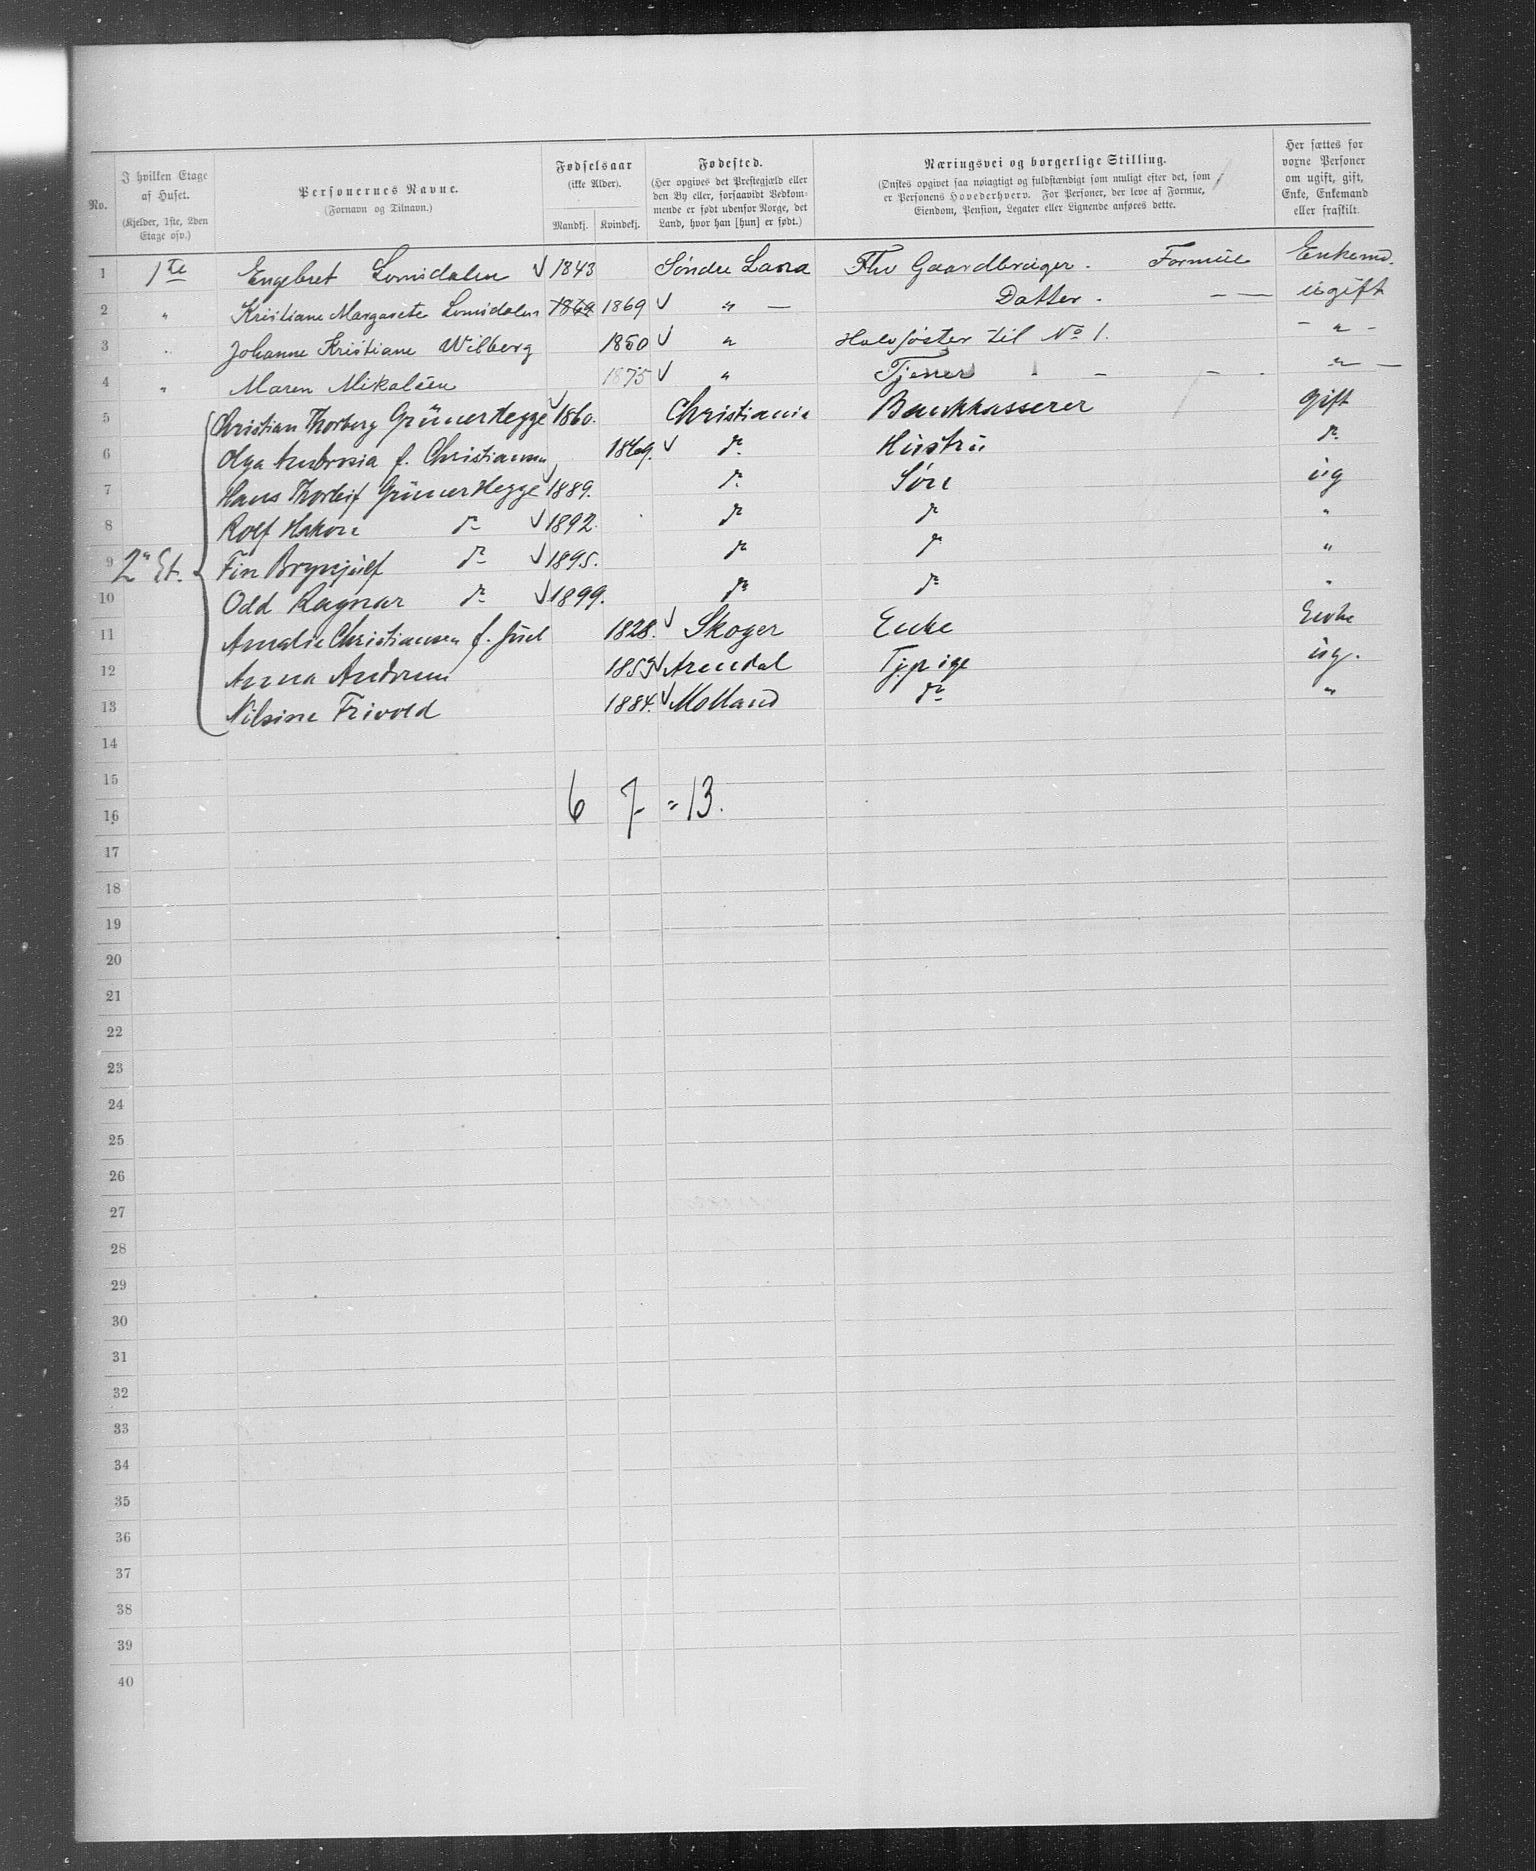 No. | I hvilken Etage af Huset. (Kjelder, 1ste, 2den Etage osv.) | Personernes Navne. (Fornavn og Tilnavn.) | Fødselsaar (ikke Alder). Mandkj. | Kvindekj. | Fødested. (Her opgives det Prestegjæld eller den By eller, forsaavidt Vedkommende er født udenfor Norge, det Land, hvor han [hun] er født.) | Næringsvei og borgerlige Stilling. (Ønskes opgivet saa nøiagtigt og fuldstændigt som muligt efter det, som er Personens Hovederhverv. For Personer, der leve af Formue, Eiendom, Pension, Legater eller Lignende anføres dette. | Her sættes for voxne Personer om ugift, gift, Enke, Enkemand eller fraskilt
1 | 1te | Engebret Lomsdalen √ | 1843 | | Søndre Land | Fhv Gaardbruger. Formue | Enkemd.
2 | " | Kristiane Margarete Lomsdalen | 1869 | 1869 √ | " — | Datter. — — | ugift
3 | " | Johanne Kristiane Wilberg | | 1850 √ | " | Halvsøster til No 1. | – " –
4 | " | Maren Mikalsen | | 1875 √ | " | Tjener – – | " —
5 | Christian Thorberg Grüner Hegge √ | 1860. | | Christiania | Bankkasserer | Gift
6 | Olga Ambrosia f. Christiansen | | 1869. √ | do | Hustru | do
7 | Hans Thorleif Grüner Hegge √ | 1889. | | do | Søn | ug
8 | Rolf Hakon do √ | 1892. | | do | do | "
9 | 2n Et. | Fin Brynjulf do √ | 1895. | | do | do | "
10 | Odd Ragnar do √ | 1899. | | do | do | "
11 | Amalie Christiansen f. Juel | | 1828. √ | Skoger | Enke | Enke
12 | Anna Andersen | | 1859 √ | Arendal | Tjpige | ug.
13 | Nilsine Frivold | | 1884. √ | Molland | do | "
14
15
16 | 6 | 7 = 13.
17
18
19
20
21
22
23
24
25
26
27
28
29
30
31
32
33
34
35
36
37
38
39
40